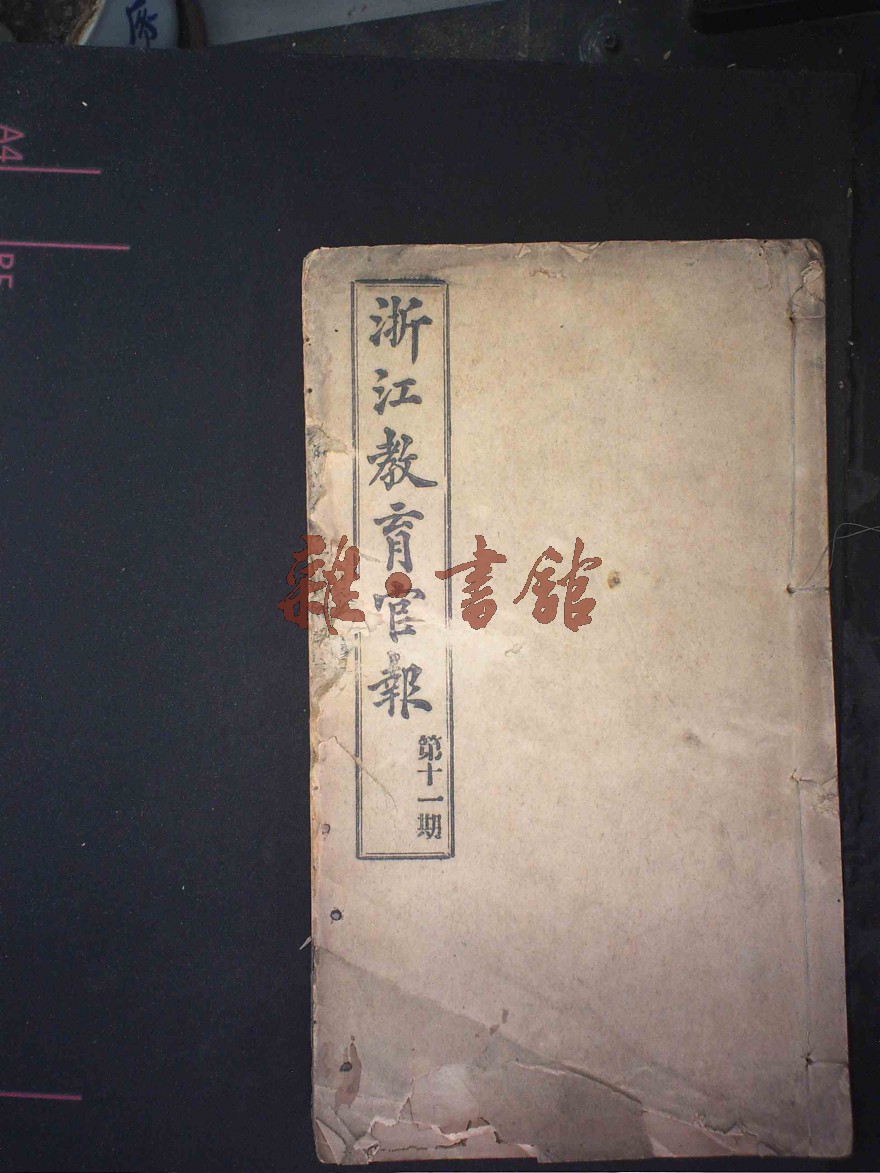 浙江教育官報
第十一期
雜·書館
A4
B5